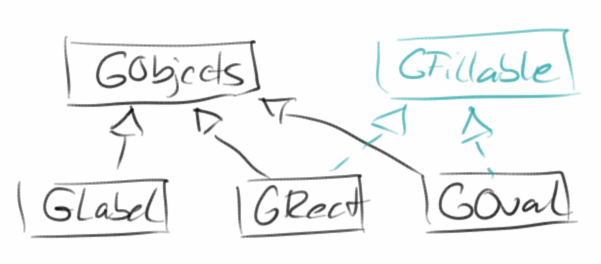 GObjects
GFillable
GLabel
GRect
GOval